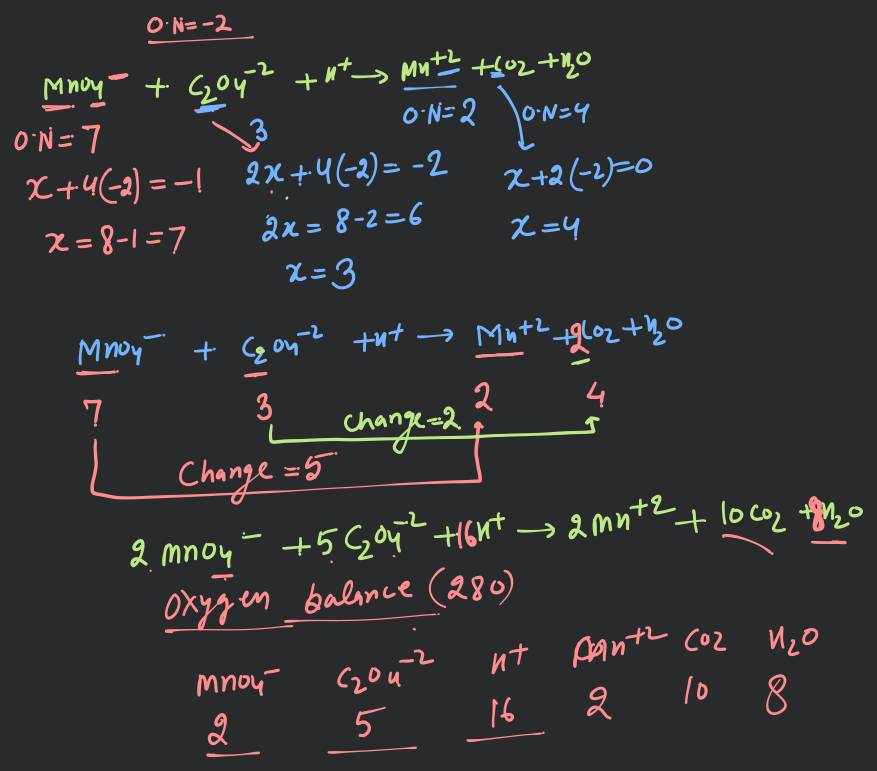 O·N=-2
MnO4⁻ + C2O4⁻² + H⁺ → Mn⁺² + CO2 + H2O
O·N=7 3 O·N=2 O·N=4
x+4(-2)=-1 2x+4(-2)=-2 x+2(-2)=0
x=8-1=7 2x=8-2=6 x=4
x=3
MnO4⁻ + C2O4⁻² + H⁺ → Mn⁺² + 2CO2 + H2O
7 3 2 4
Change=2
Change=5
2 MnO4⁻ + 5 C2O4⁻² + 16H⁺ → 2Mn⁺² + 10CO2 + 8H2O
Oxygen balance (280)
MnO4⁻ C2O4⁻² H⁺ Mn⁺² CO2 H2O
2 5 16 2 10 8